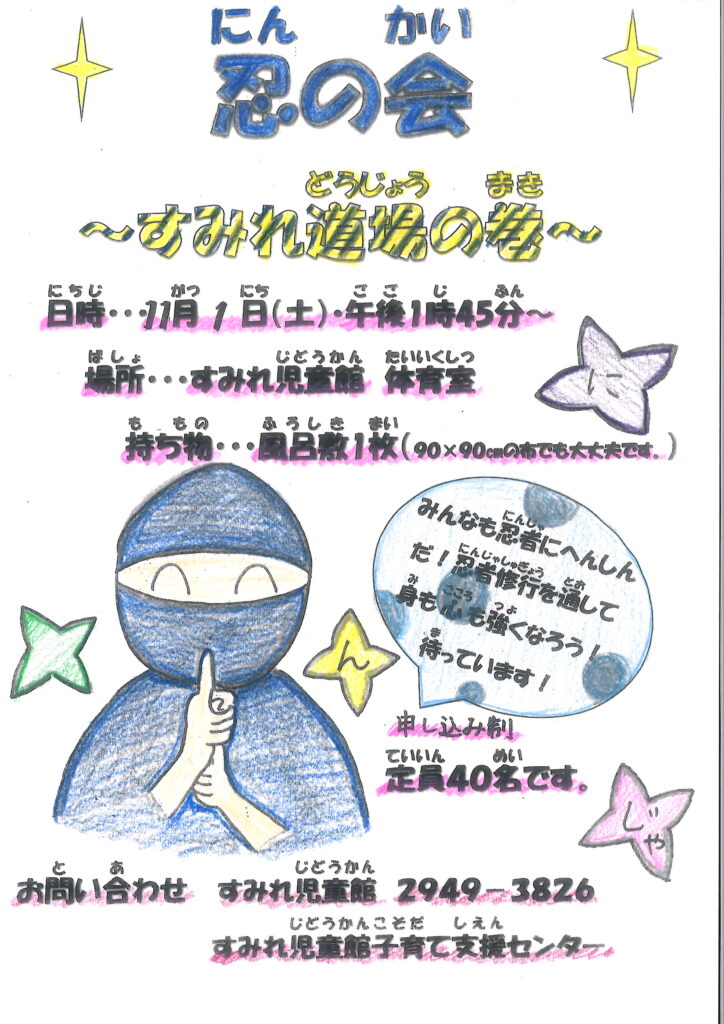 にん かい
忍の会
どうじょう まき
～すみれ道場の巻～
にちじ がつ にち ごご じ ふん
日時・・・11月1日(土)・午後1時45分～
ばしょ じどうかん たいいくしつ
場所・・・すみれ児童館 体育室
も もの ふろしき まい
持ち物・・・風呂敷1枚(90×90㎝の布でも大丈夫です。)
に
にんじゃ
みんなも忍者にへんしん
にんじゃしゅぎょう とお
だ！忍者修行を通して
み こころ つよ
身も心も強くなろう！
ま
待っています！
ん
申し込み制
ていいん めい
定員40名です。
じゃ
と あ じどうかん
お問い合わせ すみれ児童館 2949－3826
じどうかんこそだ しえん
すみれ児童館子育て支援センター